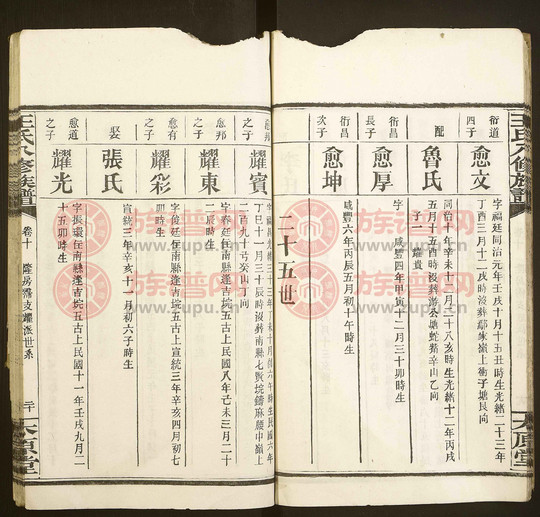 王氏八修族譜
太原堂
衍道
四子
愈文
字福廷同治元年壬戌十月十五丑時生光緒二十三年
丁酉三月十二戌時沒葬鄢家嶺上衝子塘艮向
配
魯氏
同治十年辛未十二月二十八亥時生光緒十二年丙戌
五月十五酉時沒葬游公塘蛇形辛山乙向
子一 耀賓
衍昌
長子
愈厚
字 咸豐四年甲寅十二月三十卯時生
衍昌
次子
愈坤
咸豐六年丙辰五月初十午時生
二十五世
之子
耀賓
丁巳十一月三十辰時沒葬南縣七
之子
耀東
字春廷住南縣逢吉垸五古上民國八年己未三月二十
二辰時生
愈有
之子
耀彩
字俊廷住南縣逢吉垸五古上宣統三年辛亥四月初七
卯時生
娶
張氏
宣統三年辛亥十一月初六子時生
愈道
之子
耀光
字振寰住南縣逢吉垸五古上民國十一年壬戌九月二
十五卯時生
王氏八修族譜
卷十
隆房
支耀派世系
太原堂
族谱录网
www.zupu.cn